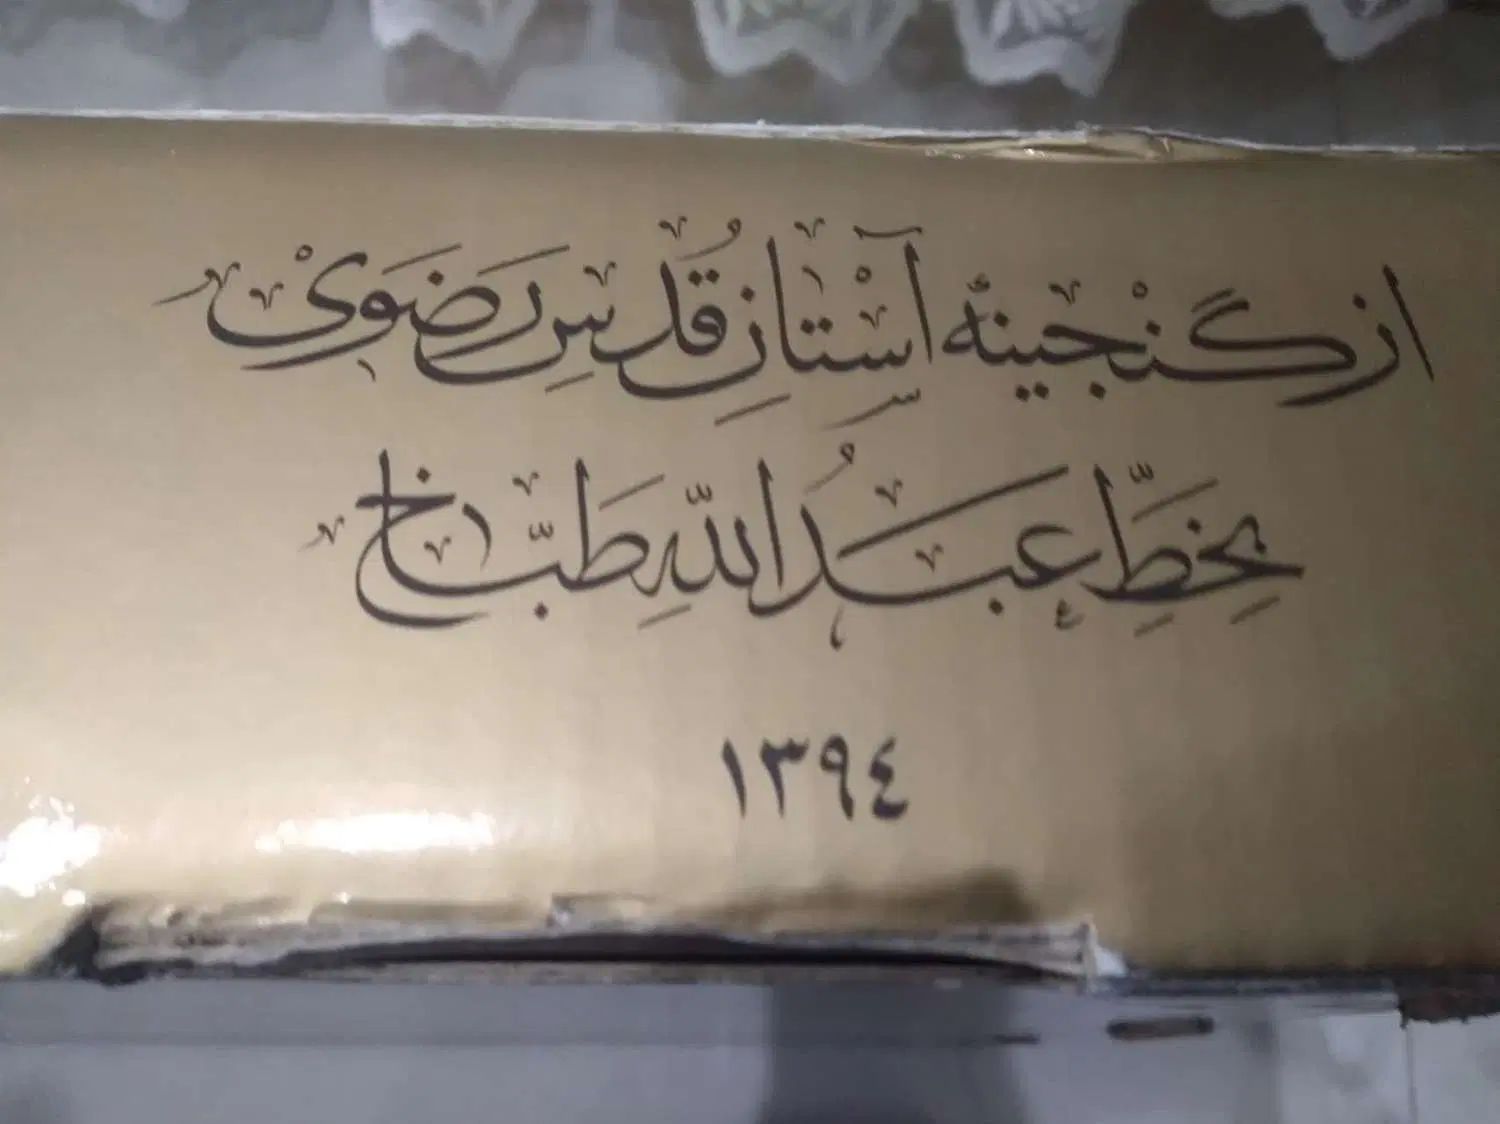 از گنجینهٔ آستانِ قُدسِ رَضَویْ
بِخطِّ عَبدُاللهِ طَبّاخ
١٣٩٤